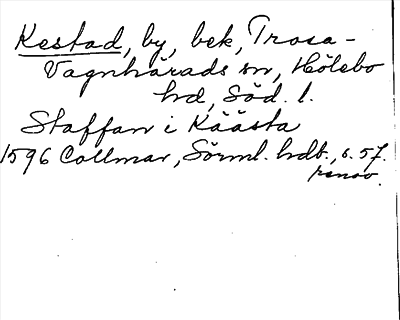 Kestad, by, bek, Trosa-
Vagnhärads sn, Hölebo
hd, Söd. l.
Staffan i Käästa
1596 Collmar, Sörml. hdb., s. 57.
renov.